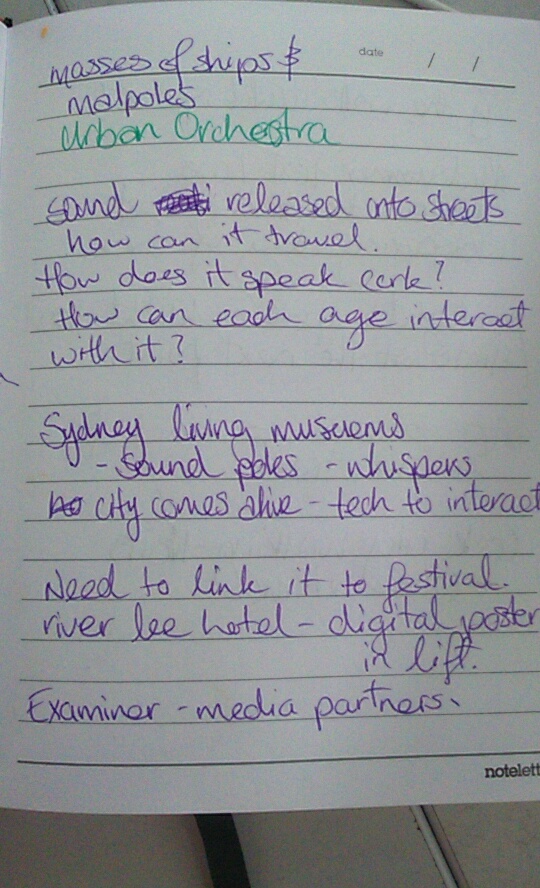 masses of ships &
malpoles
date / /
Urban Orchestra
sound released onto streets
how can it travel.
How does it speak cork?
How can each age interact
with it?
Sydney living museums
- sound poles - whispers
city comes alive - tech to interact
Need to link it to festival.
river lee hotel - digital poster
in lift.
Examiner - media partners.
notelett